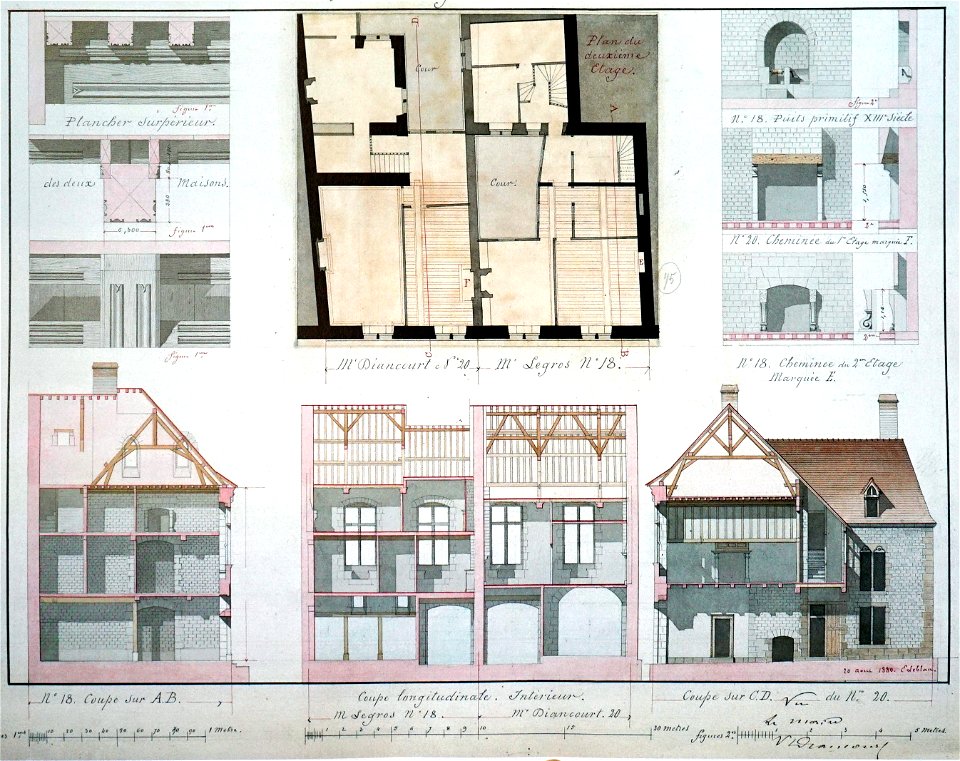 figure 1re
Plancher Surpérieur.
des deux Maisons.
0,300
figure 1ere
figure 1ere
Cour
Plan du
deuxième
Etage.
Cour.
D
A
F
E
C
B
45
Mr Diancourt No 20. Mr Legros No 18.
figure 2e
No 18. Puits primitif XIIIe Siècle
No 20. Cheminée du 1er Etage marquée F.
No 18. Cheminée du 2me Etage
Marquée E.
20 aout 1880.
No 18. Coupe sur A.B.
Coupe longitudinale. Intérieur.
M Legros No 18. Mr Diancourt. 20
Coupe sur C.D. du No 20.
Vu
Le maire
10 20 30 40 50 60 70 80 90 1 Metre.
1 2 3 4 5 6 7 8 9 10 15 20 metres
figures 2e
1 2 3 4 5 Metres.